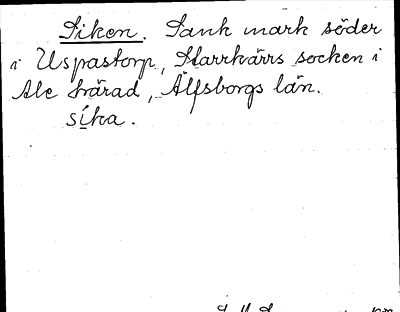 Siken. Sank mark söder
i Uspastorp, Starrkärrs socken i
Ale härad, Älfsborgs län.
sika.